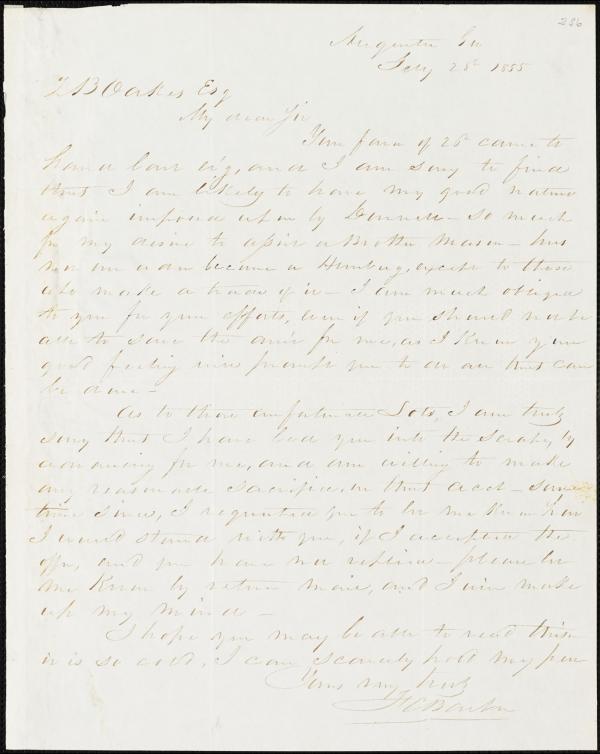 286
Augusta Geo
Feby 28th 1855
Z B Oakes Esq
My dear Sir
Your favor of 26th came to
hand last evg, and I am sorry to find
that I am likely to have my good nature
again imposed upon by Donnell - so much
for my desire to assist a Brother Mason - has
not our order become a Humbug, except to those
who make a trade of it - I am much obliged
to you for your efforts, even if you should not be
able to save the amt for me, as I know your
good feeling will prompt you to do all that can
be done -
As to those unfortunate Lots, I am truly
sorry that I have led you into the scrape, by
advancing for me, and am willing to make
any reasonable sacrifice, on that acct - some
time since, I requested you to let me know how
I would stand with you, if I accepted the
offer, and you have not replied - please let
me know by return mail, and I will make
up my mind -
I hope you may be able to read this
it is so cold, I can scarcely hold my pen
Yours very truly
F C Barber